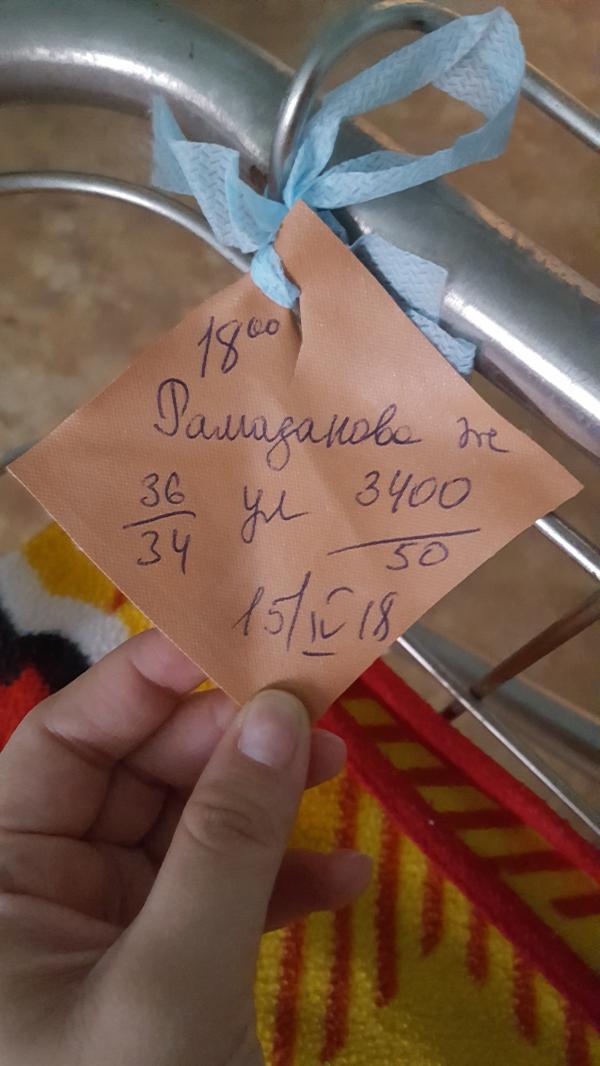 18⁰⁰
Рамазанова же
36/34 ул 3400/50
15/IV 18